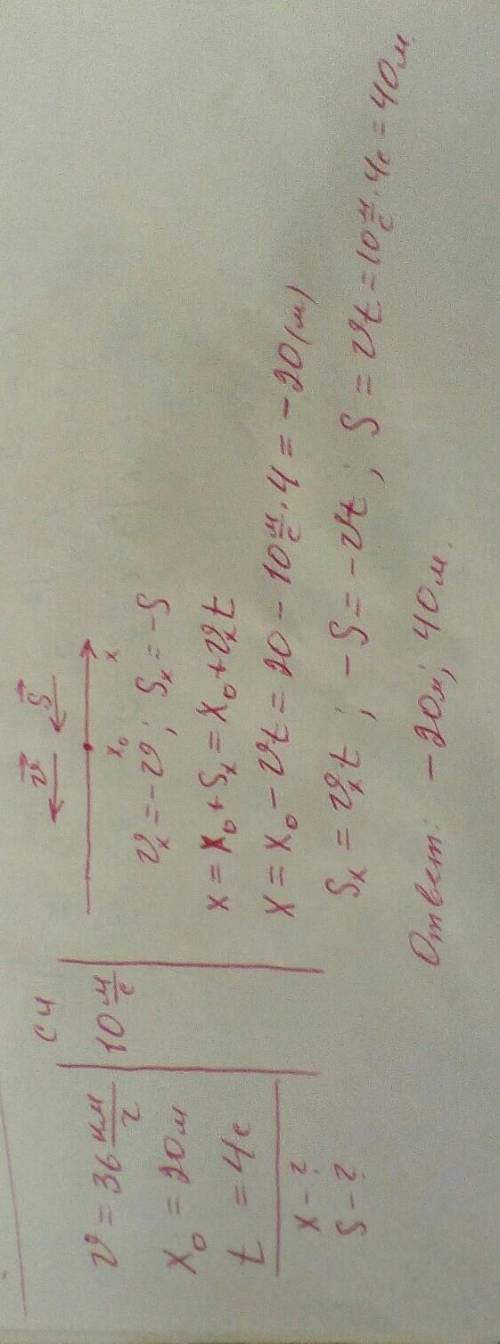 v = 36 км/ч
x₀ = 20 м
t = 4 с
x - ?
S - ?
СИ
10 м/с
v⃗ S⃗
x₀ x
vₓ = -v; Sₓ = -S
x = x₀ + Sₓ = x₀ + vₓt
x = x₀ - vt = 20 - 10 м/с · 4 = -20 (м)
Sₓ = vₓt; -S = -vt; S = vt = 10 м/с · 4с = 40 м.
Ответ: -20м; 40 м.